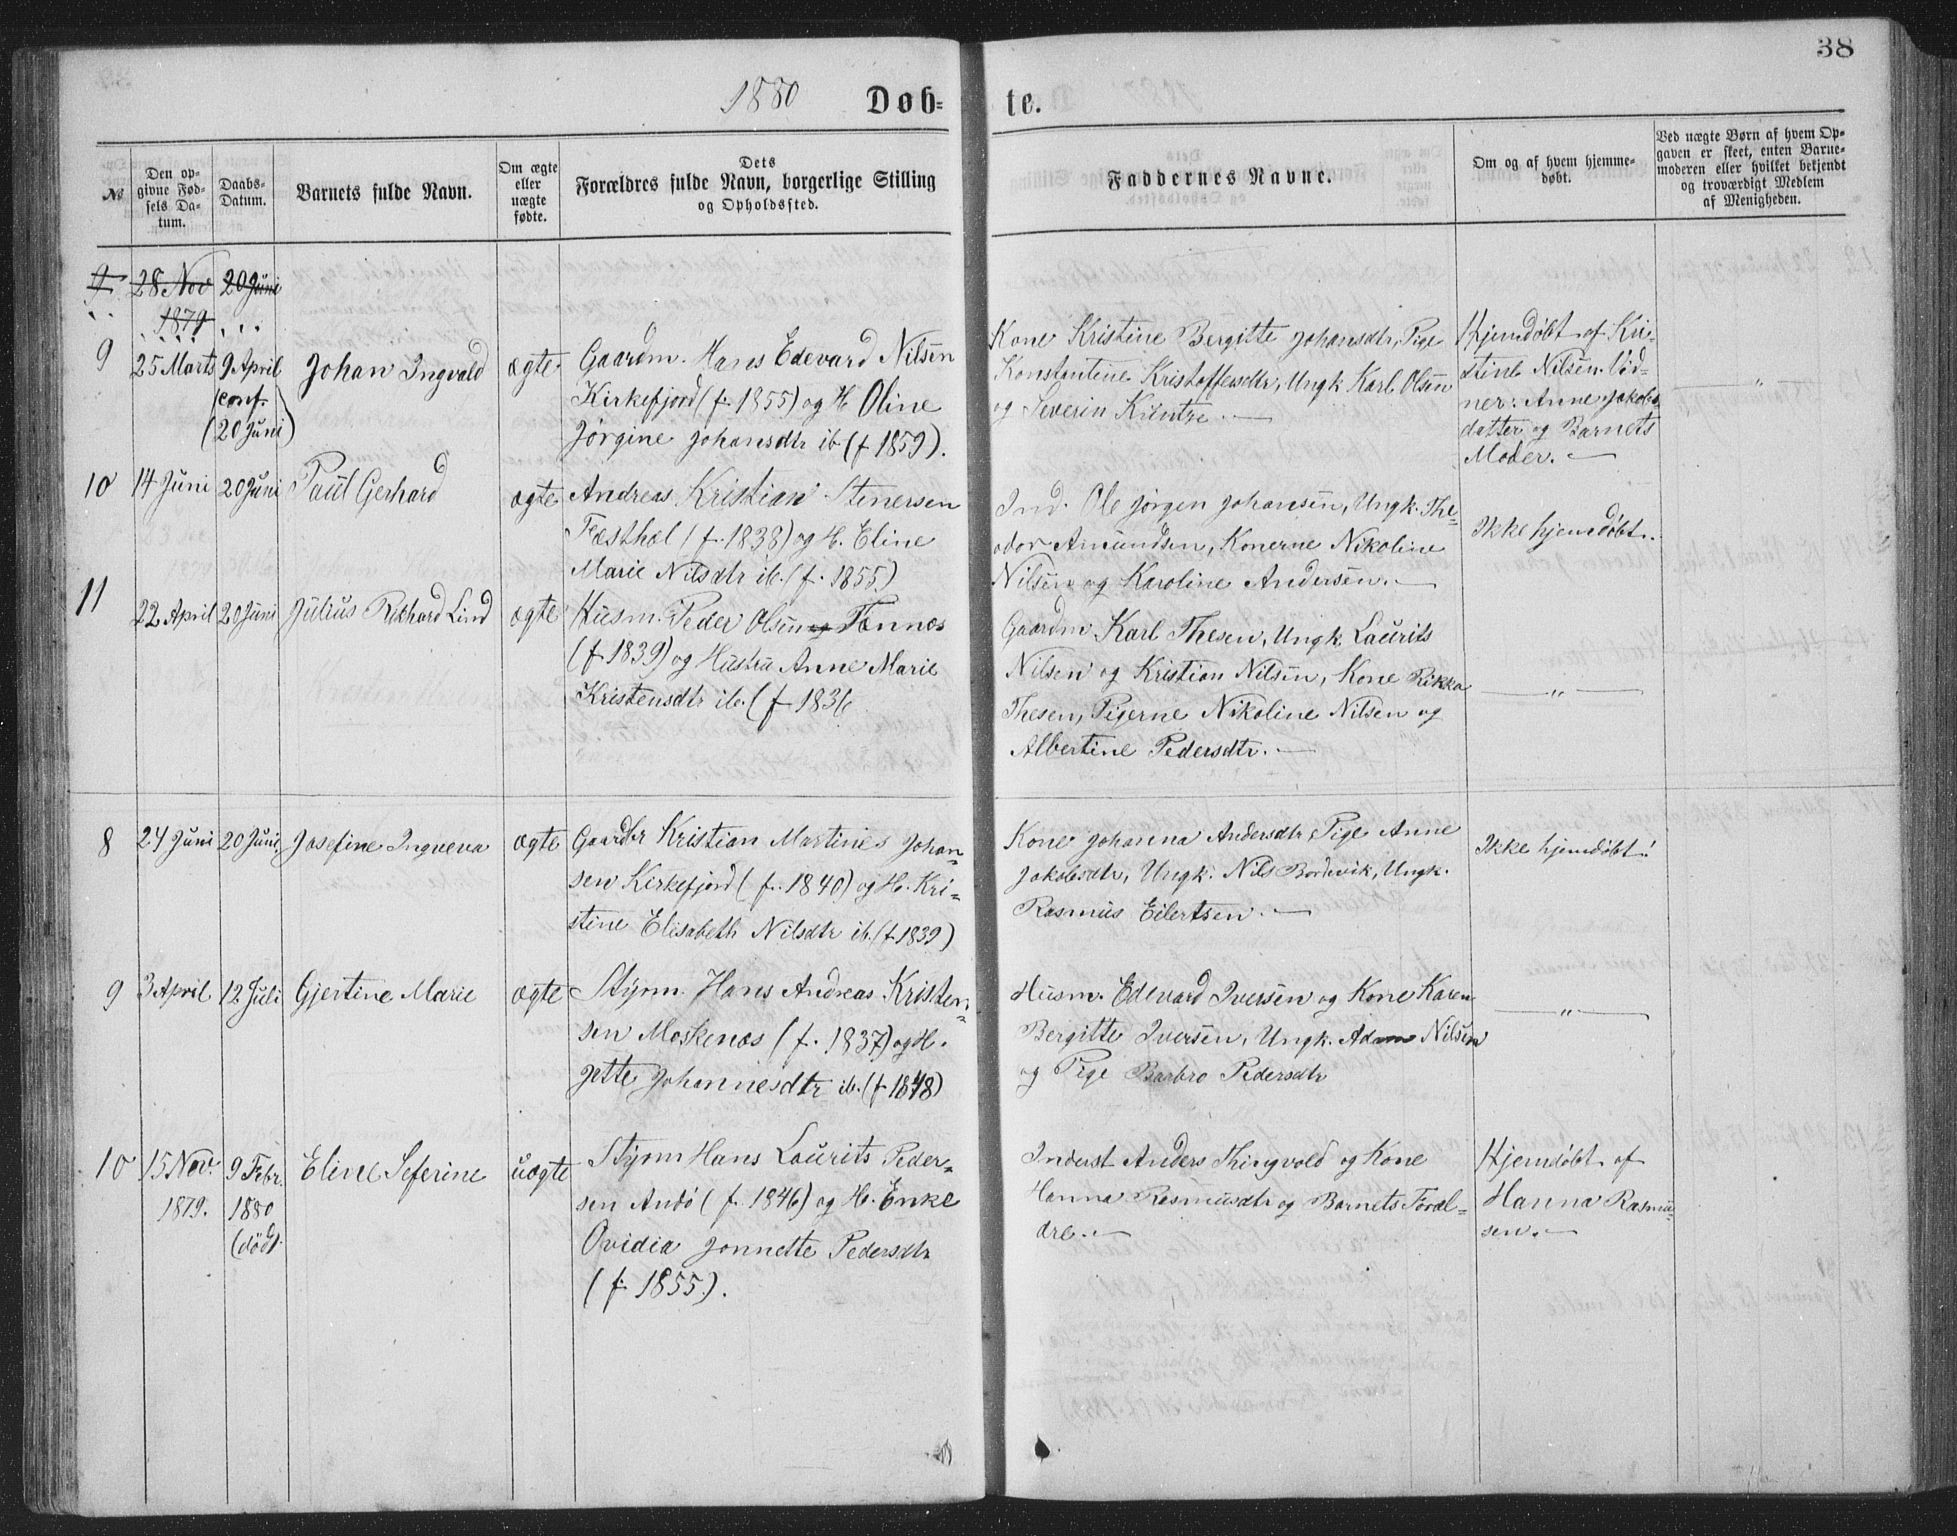 38
1880 Døb= te.
№
Den op-
givne Fød-
sels Da-
tum.
Daabs-
Datum.
Barnets fulde Navn.
Om ægte
eller
uægte
fødte.
Dets
Forældres fulde Navn, borgerlige Stilling
og Opholdssted.
Faddernes Navne.
Om og af hvem hjemme-
døbt.
Ved uægte Børn af hvem Op-
gaven er skeet, enten Barne-
moderen eller hvilket bekjendt
og troværdigt Medlem
af Menigheden.
9 28 Nov 20 Juni
1879
9
25 Marts
9 April
(conf.
(20 Juni)
Johan Ingvald
ægte
Gaardm. Hans Edevard Nilsen
Kirkefjord (f. 1855) og H. Oline
Jørgine Johansdtr ib (f 1859).
Kone Kristine Bergitte Johansdtr, Pige
Konstantine Kristoffersdtr, Ungk Karl Olsen
og Severin
Hjemdøbt af Kri-
stine Nilsen. Vid-
ner: Anne Jakobs
datter og Barnets
Moder.
10
14 Juni
20 Juni
Paul Gerhard
ægte
Andreas Kristian Stenersen
Fæsthæl (f. 1838) og H. Eline
Marie Nilsdtr ib. (f. 1855)
Ind. Ole Jørgen Johansen, Ungk. The-
odor Amundsen, Konerne Nikoline
Nilsen og Karoline Andersen.
Ikke hjemdøbt.
11
22 April
20 Juni
Julius Rikhard Lind
ægte
Husm. Peder Olsen og Tennes
(f 1839) og Hustru Anne Marie
Kristensdtr ib. (f 1836
Gaardm Karl Thesen, Ungk. Laurits
Nilsen og Kristian Nilsen, Kone Rikka
Thesen, Pigerne Nikoline Nilsen og
Albertine Pedersdtr.
"
8
24 Juni
20 Juni
Josefine Ingveva
ægte
Gaardbr Kristian Martines Johan-
sen Kirkefjord (f. 1840) og H. Kri-
stine Elisabeth Nilsdtr ib. (f 1839)
Kone Johanna Andersdtr, Pige Anne
Jakobsdtr, Ungk. Nils Bordevik, Ungk.
Rasmus Eilertsen.
Ikke hjemdøbt!
9
3 April
12 Juli
Gjertine Marie
ægte
Styrm. Hans Andreas Kristen-
sen Moskenæs (f. 1837) og H.
Jette Johannesdtr ib. (f 1848)
Husm. Edevard Iversen og Kone Karen
Bergitte Iversen, Ungk. Adam Nilsen
og Pige Barbro Pedersdtr
"
10
15 Nov.
1879.
9 Febr.
1880
(død).
Eline Seferine
uægte
Styrm Hans Laurits Peder-
sen Andö (f. 1846) og H. Enke
Ovidia Jonnette Pedersdtr
(f. 1855).
Inderst Anders Thingvold og Kone
Hanna Rasmusdtr og Barnets Foræl-
dre.
Hjemdøbt af
Hanna Rasmu-
sen.